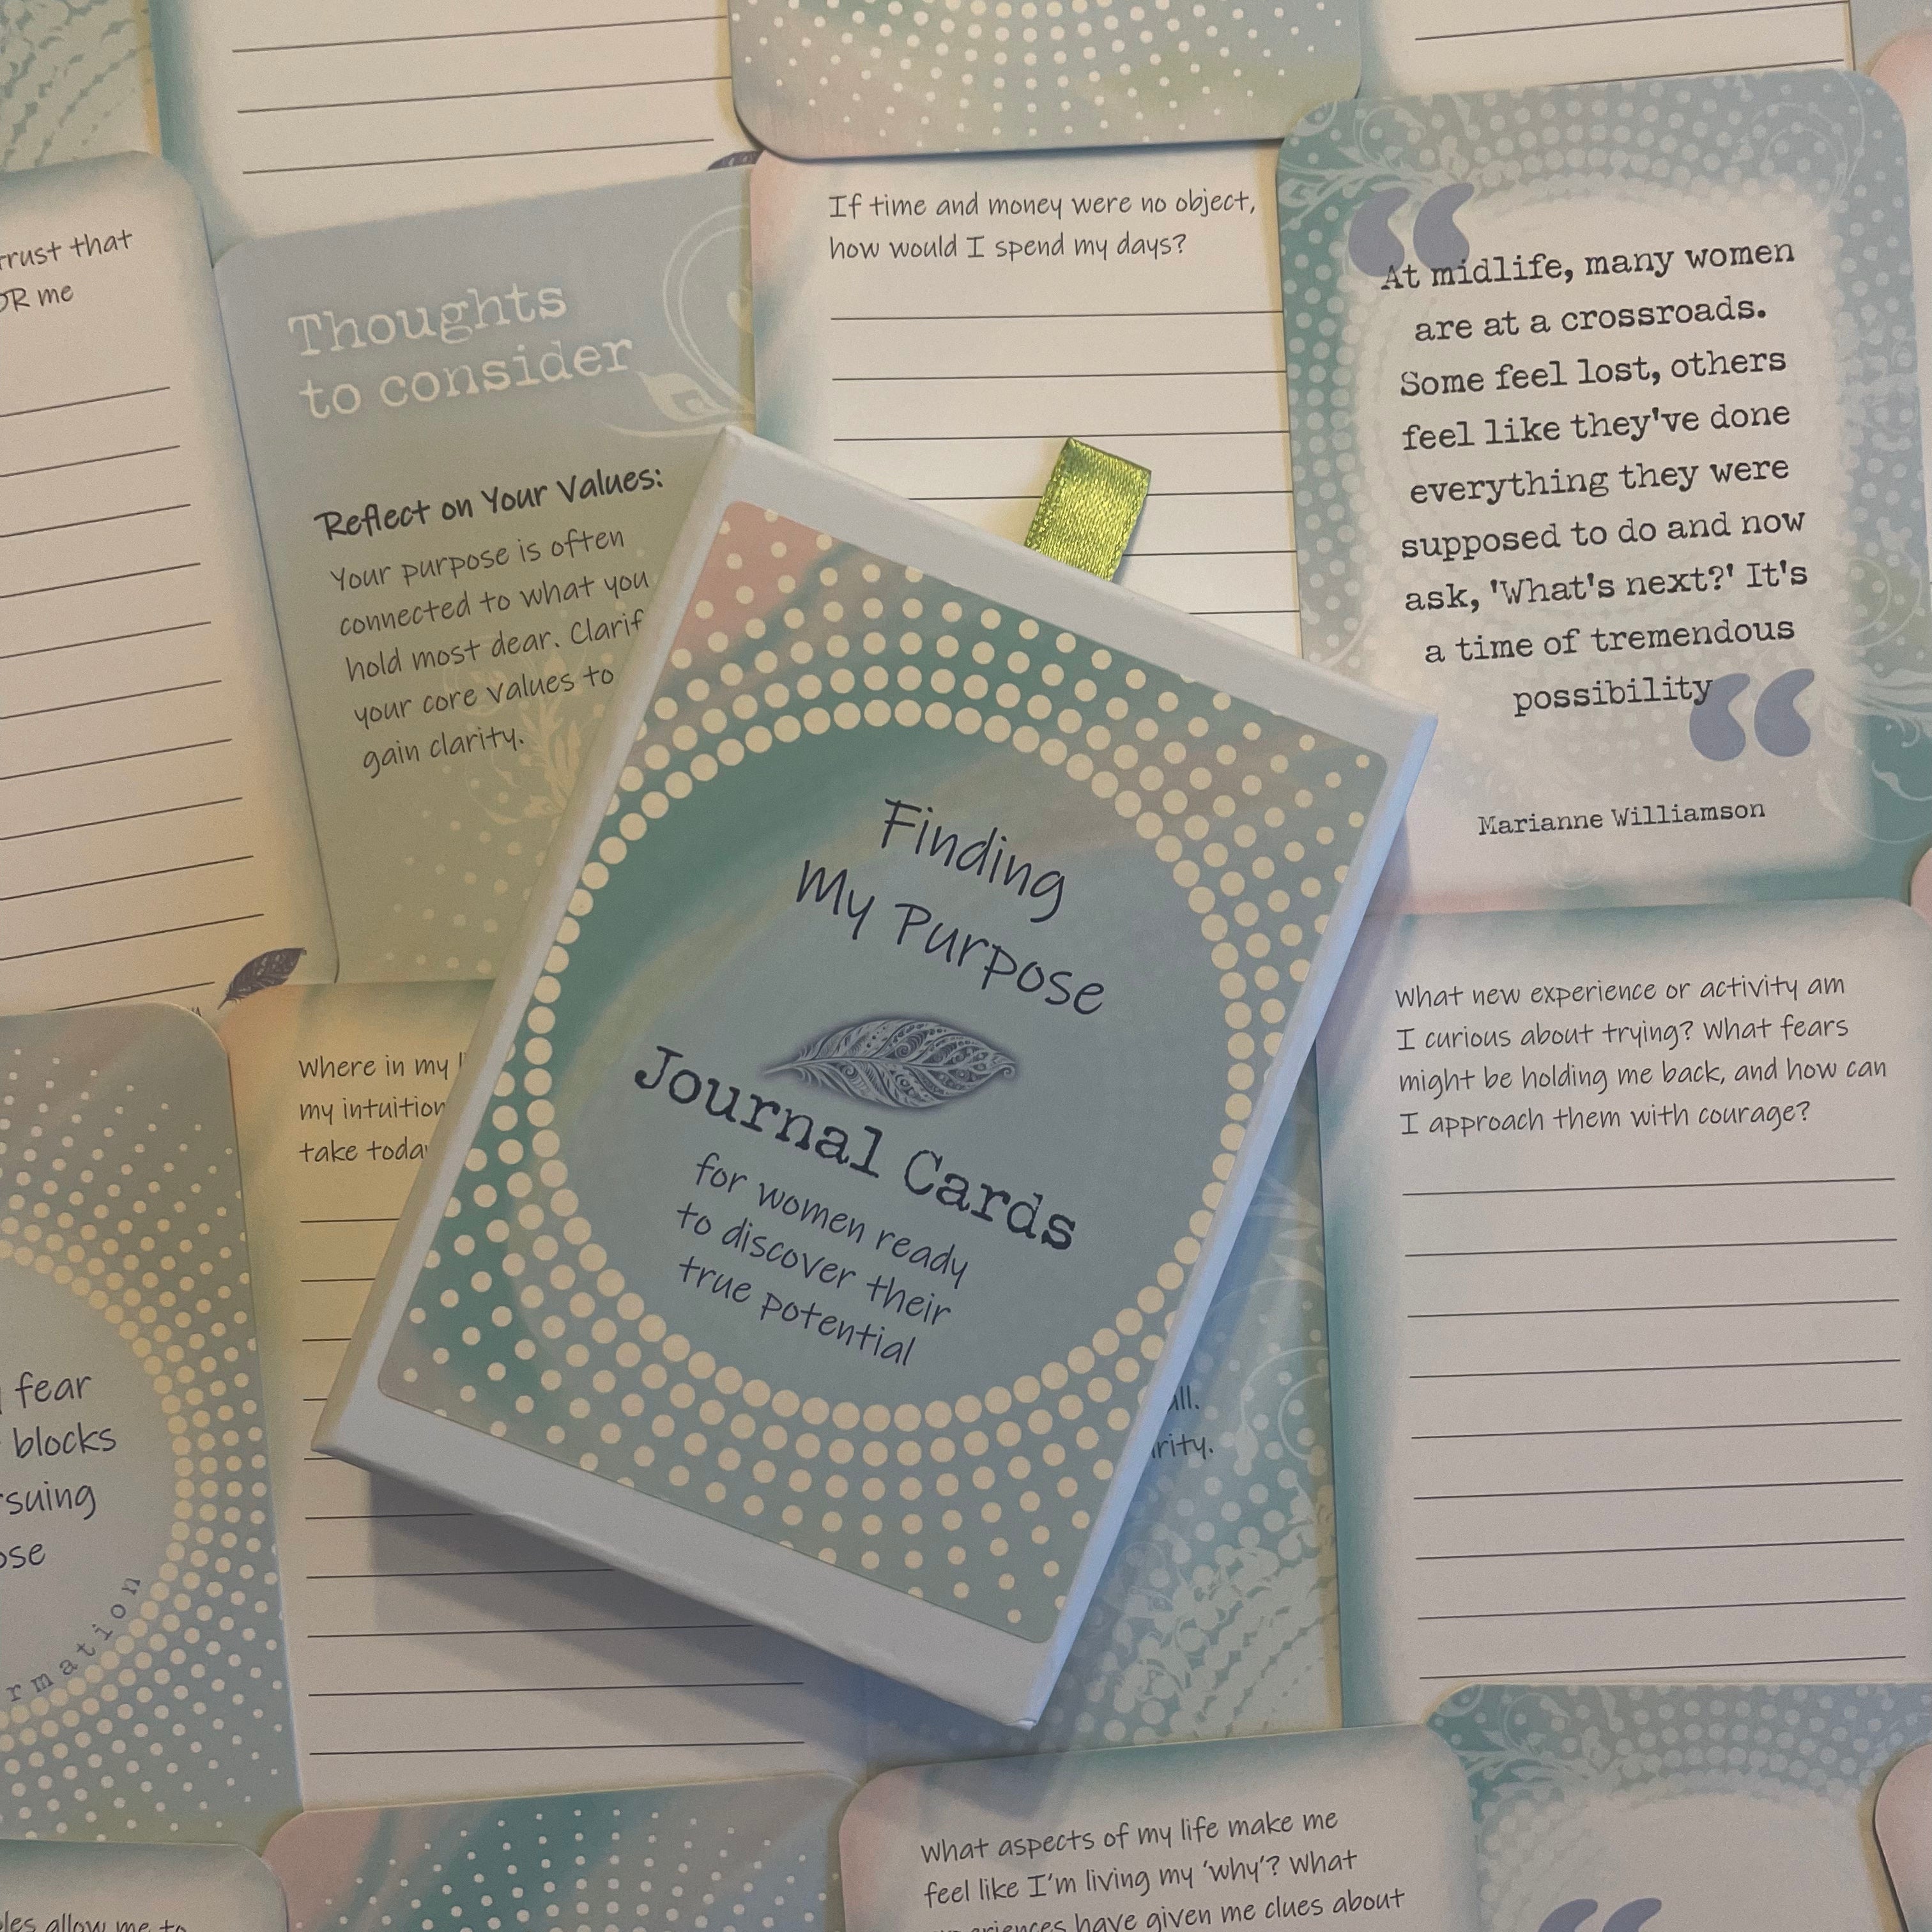 trust that
OR me
Thoughts
to consider
Reflect on Your Values:
Your purpose is often
connected to what you
hold most dear. Clarif
your core values to
gain clarity.
If time and money were no object,
how would I spend my days?
At midlife, many women
are at a crossroads.
Some feel lost, others
feel like they've done
everything they were
supposed to do and now
ask, 'What's next?' It's
a time of tremendous
possibility
Marianne Williamson
Finding
My Purpose
Journal Cards
for women ready
to discover their
true potential
Where in my l
my intuition
take today
What new experience or activity am
I curious about trying? What fears
might be holding me back, and how can
I approach them with courage?
fear
blocks
rsuing
ose
rmation
all.
rity.
What aspects of my life make me
feel like I'm living my 'why'? What
eriences have given me clues about
les allow me to